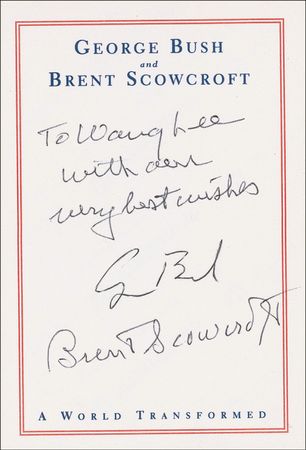 GEORGE BUSH
and
BRENT SCOWCROFT
To Wang Lee
with our
very best wishes
G Bush
Brent Scowcroft
A WORLD TRANSFORMED